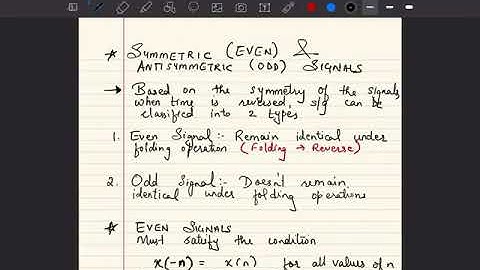 * SYMMETRIC (EVEN) &
ANTISYMMETRIC (ODD) SIGNALS
→ Based on the symmetry of the signals
when time is reversed, sig can be
classified into 2 types
1. Even Signal:- Remain identical under
folding operation (Folding → Reverse)
2. Odd Signal:- Doesn't remain
identical under folding operations
* EVEN SIGNALS
Must satisfy the condition
x(-n) = x(n) for all values of n